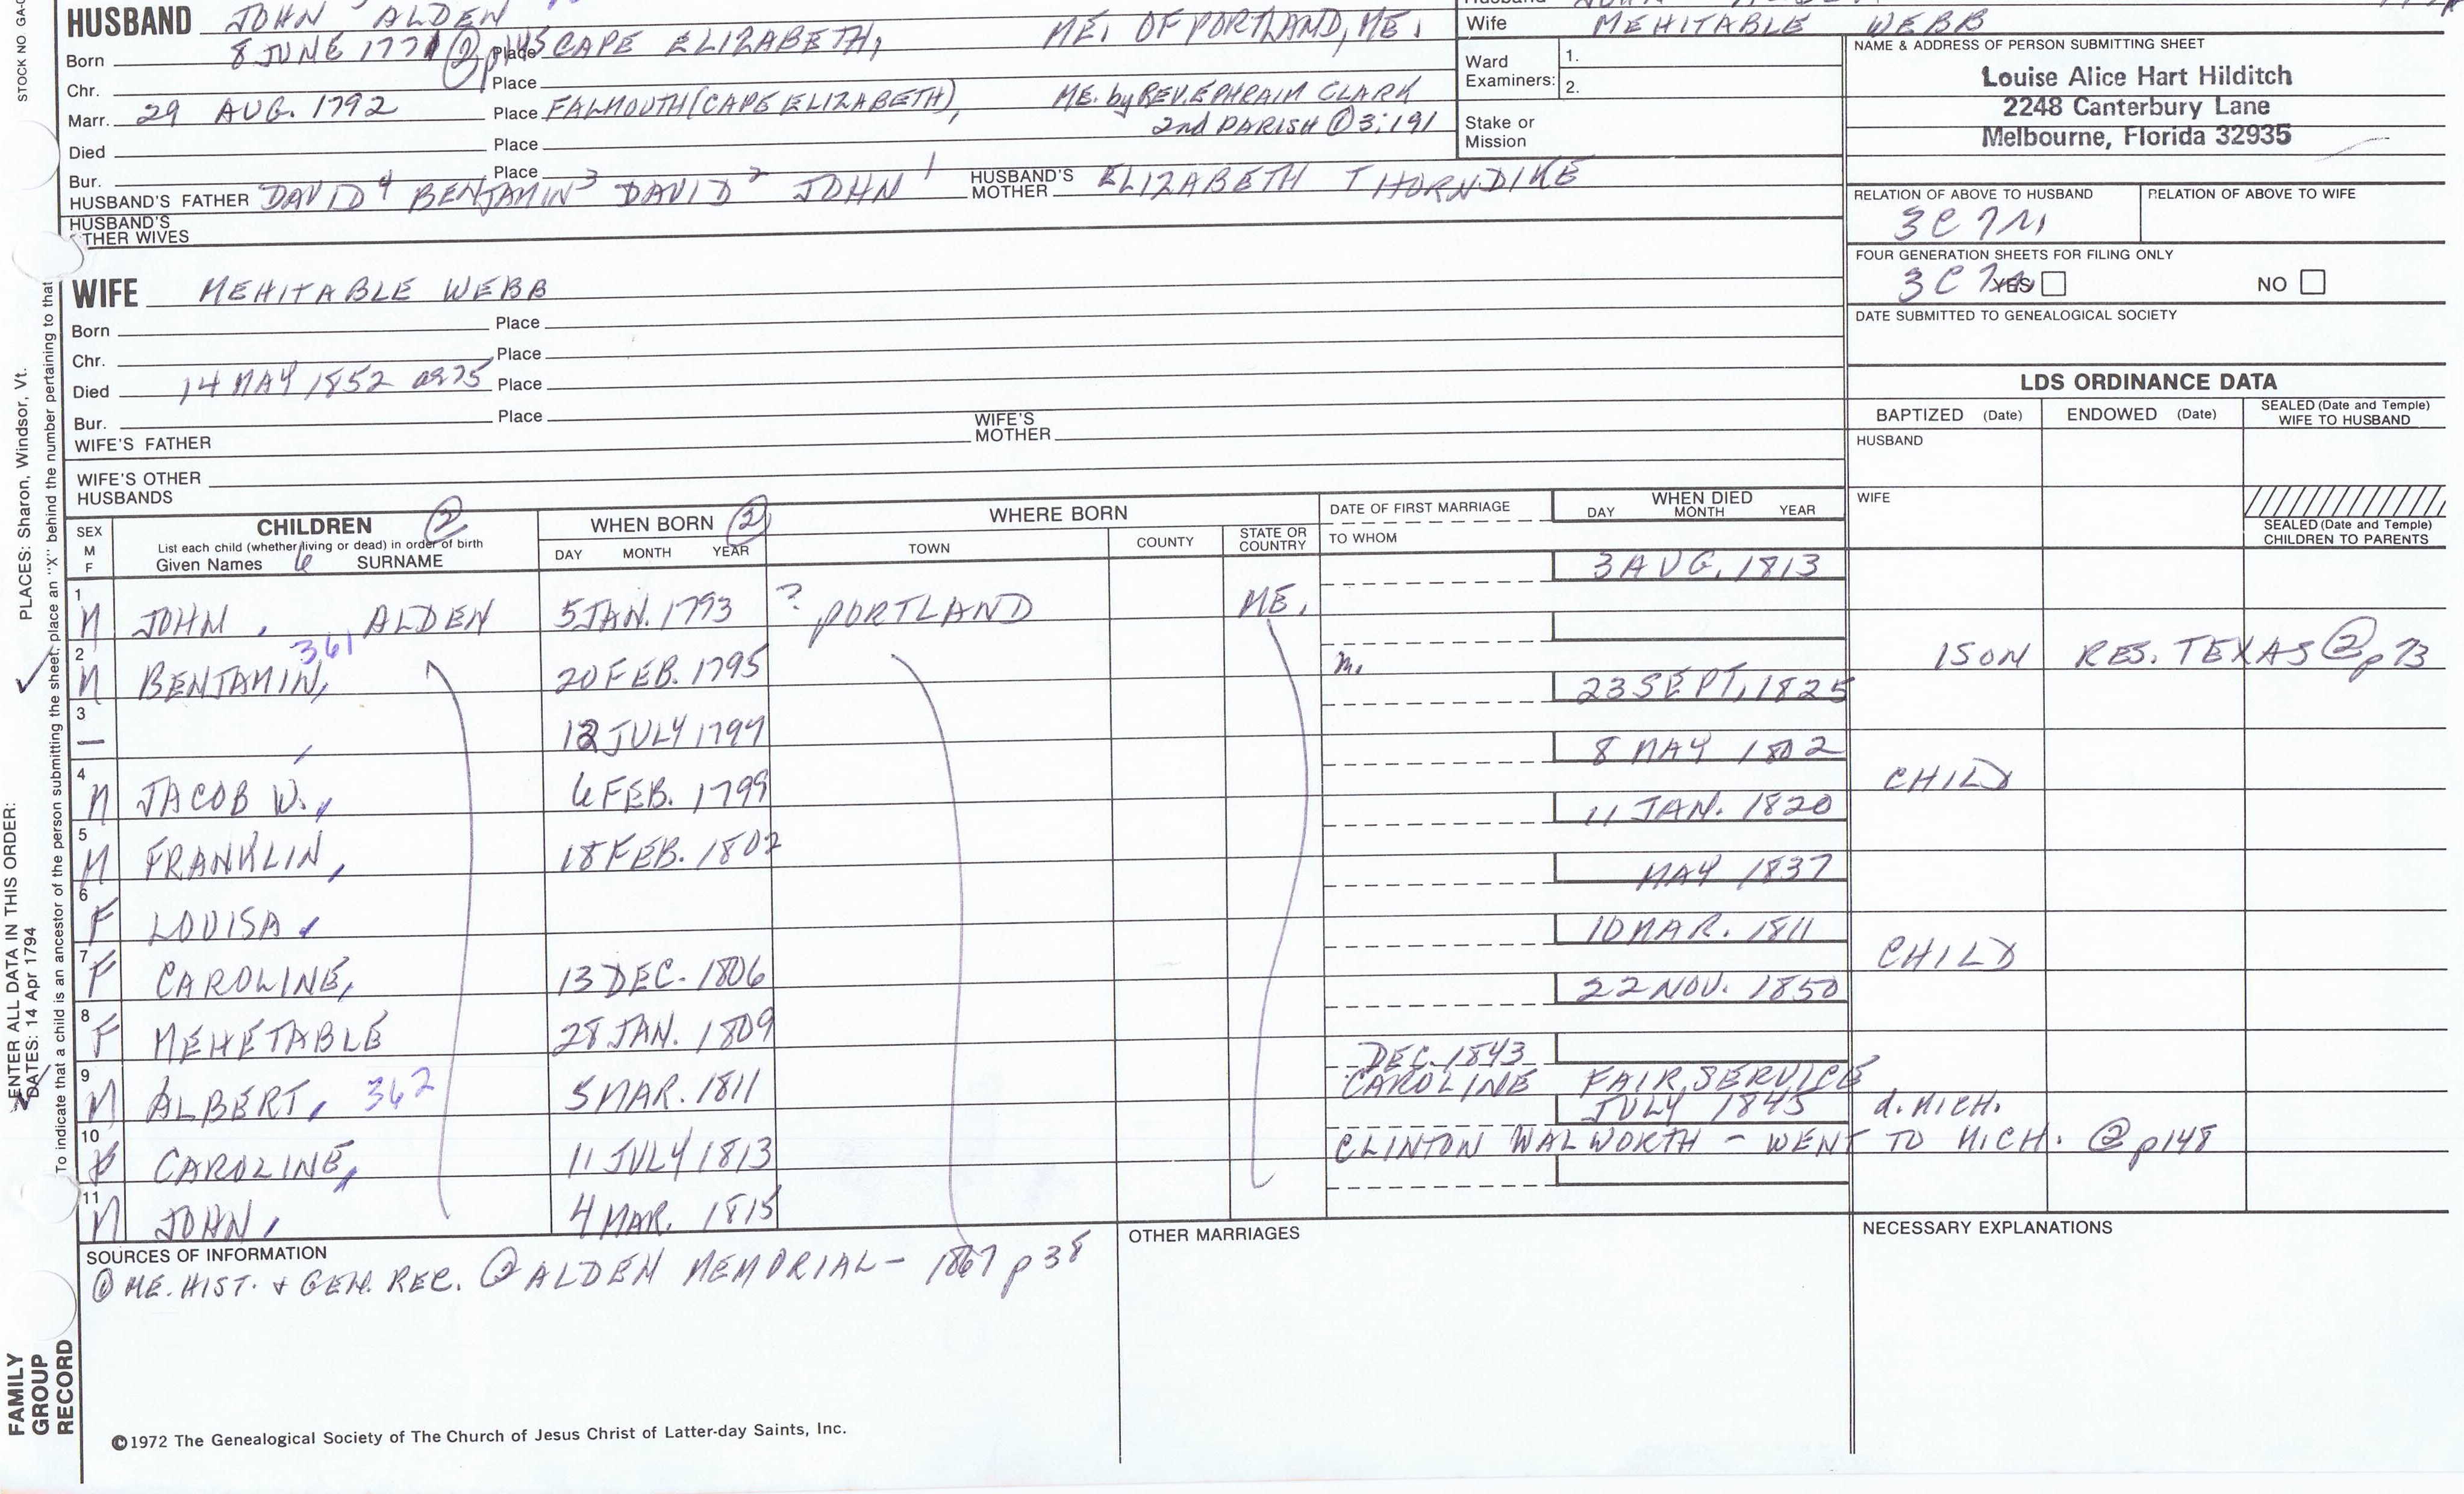 HUSBAND JOHN ALDEN
Born 8 JUNE 1771 ② p 45 Place CAPE ELIZABETH, ME. OF PORTLAND, ME.
Chr. Place
Marr. 29 AUG. 1792 Place FALMOUTH (CAPE ELIZABETH), ME. by REV. EPHRAIM CLARK
2nd PARISH ① 3:191
Died Place
Bur. Place
HUSBAND'S FATHER DAVID 4 BENJAMIN 3 DAVID 2 JOHN 1 HUSBAND'S MOTHER ELIZABETH THORNDIKE
HUSBAND'S
OTHER WIVES
Wife MEHITABLE WEBB
Ward
Examiners: 1.
2.
Stake or
Mission
NAME & ADDRESS OF PERSON SUBMITTING SHEET
Louise Alice Hart Hilditch
2248 Canterbury Lane
Melbourne, Florida 32935
RELATION OF ABOVE TO HUSBAND RELATION OF ABOVE TO WIFE
3C
FOUR GENERATION SHEETS FOR FILING ONLY
3C YES NO
DATE SUBMITTED TO GENEALOGICAL SOCIETY
WIFE MEHITABLE WEBB
Born Place
Chr. Place
Died 14 MAY 1852 ae 75 Place
Bur. Place
WIFE'S FATHER WIFE'S MOTHER
WIFE'S OTHER
HUSBANDS
LDS ORDINANCE DATA
BAPTIZED (Date) ENDOWED (Date) SEALED (Date and Temple)
WIFE TO HUSBAND
HUSBAND
WIFE
SEALED (Date and Temple)
CHILDREN TO PARENTS
SEX
M
F
CHILDREN ②
List each child (whether living or dead) in order of birth
Given Names SURNAME
WHEN BORN ②
DAY MONTH YEAR
WHERE BORN
TOWN COUNTY STATE OR COUNTRY
DATE OF FIRST MARRIAGE
TO WHOM
WHEN DIED
DAY MONTH YEAR
3 AUG. 1813
1 M JOHN, ALDEN 5 JAN. 1793 ? PORTLAND ME.
2 M BENJAMIN, 361 20 FEB. 1795 m. 1 SON RES. TEXAS ② p 73
23 SEPT. 1825
3 — 12 JULY 1797
8 MAY 1802
4 M JACOB W., 6 FEB. 1799 CHILD
11 JAN. 1820
5 M FRANKLIN, 18 FEB. 1802
MAY 1837
6 F LOUISA,
10 MAR. 1811
7 F CAROLINE, 13 DEC. 1806 CHILD
22 NOV. 1850
8 F MEHETABLE 28 JAN. 1809
DEC. 1843
9 M ALBERT, 362 5 MAR. 1811 CAROLINE FAIRSERVICE
JULY 1845 d. MICH.
10 F CAROLINE, 11 JULY 1813 CLINTON WALWORTH – WENT TO MICH. ② p 148
11 M JOHN, 4 MAR. 1815
SOURCES OF INFORMATION
① ME. HIST. & GEN. REC. ② ALDEN MEMORIAL – 1867 p 38
OTHER MARRIAGES
NECESSARY EXPLANATIONS
©1972 The Genealogical Society of The Church of Jesus Christ of Latter-day Saints, Inc.
STOCK NO GA-
ENTER ALL DATA IN THIS ORDER:
DATES: 14 Apr 1794
PLACES: Sharon, Windsor, Vt.
To indicate that a child is an ancestor of the person submitting the sheet, place an "X" behind the number pertaining to that
FAMILY
GROUP
RECORD